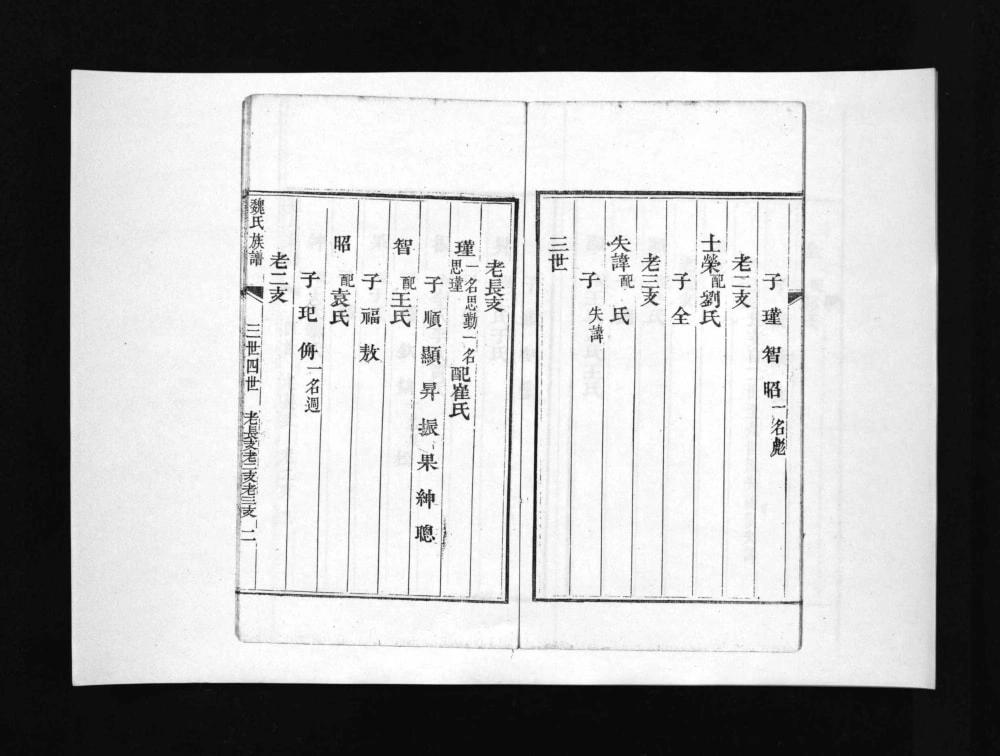 子 瑾 智 昭 一名彪
老二支
士榮 配劉氏
子 全
老三支
失諱 配 氏
子 失諱
三世
老長支
瑾 一名思勤一名思瑾 配崔氏
子 順 顯 昇 振 果 紳 聰
智 配王氏
子 福 敖
昭 配袁氏
子 玘 侜 一名週
老二支
魏氏族譜 三世四世 老長支老二支老三支 二